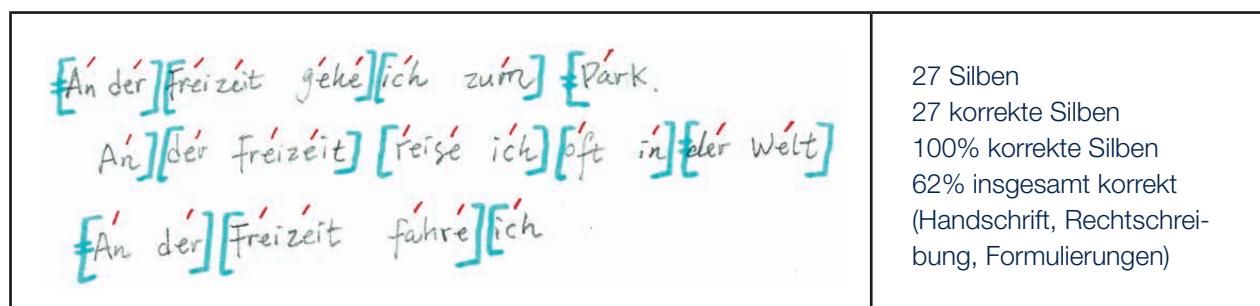 An der Freizeit gehe ich zum Park.
An der Freizeit reise ich oft in der Welt
An der Freizeit fahre ich
27 Silben
27 korrekte Silben
100% korrekte Silben
62% insgesamt korrekt
(Handschrift, Rechtschrei-
bung, Formulierungen)